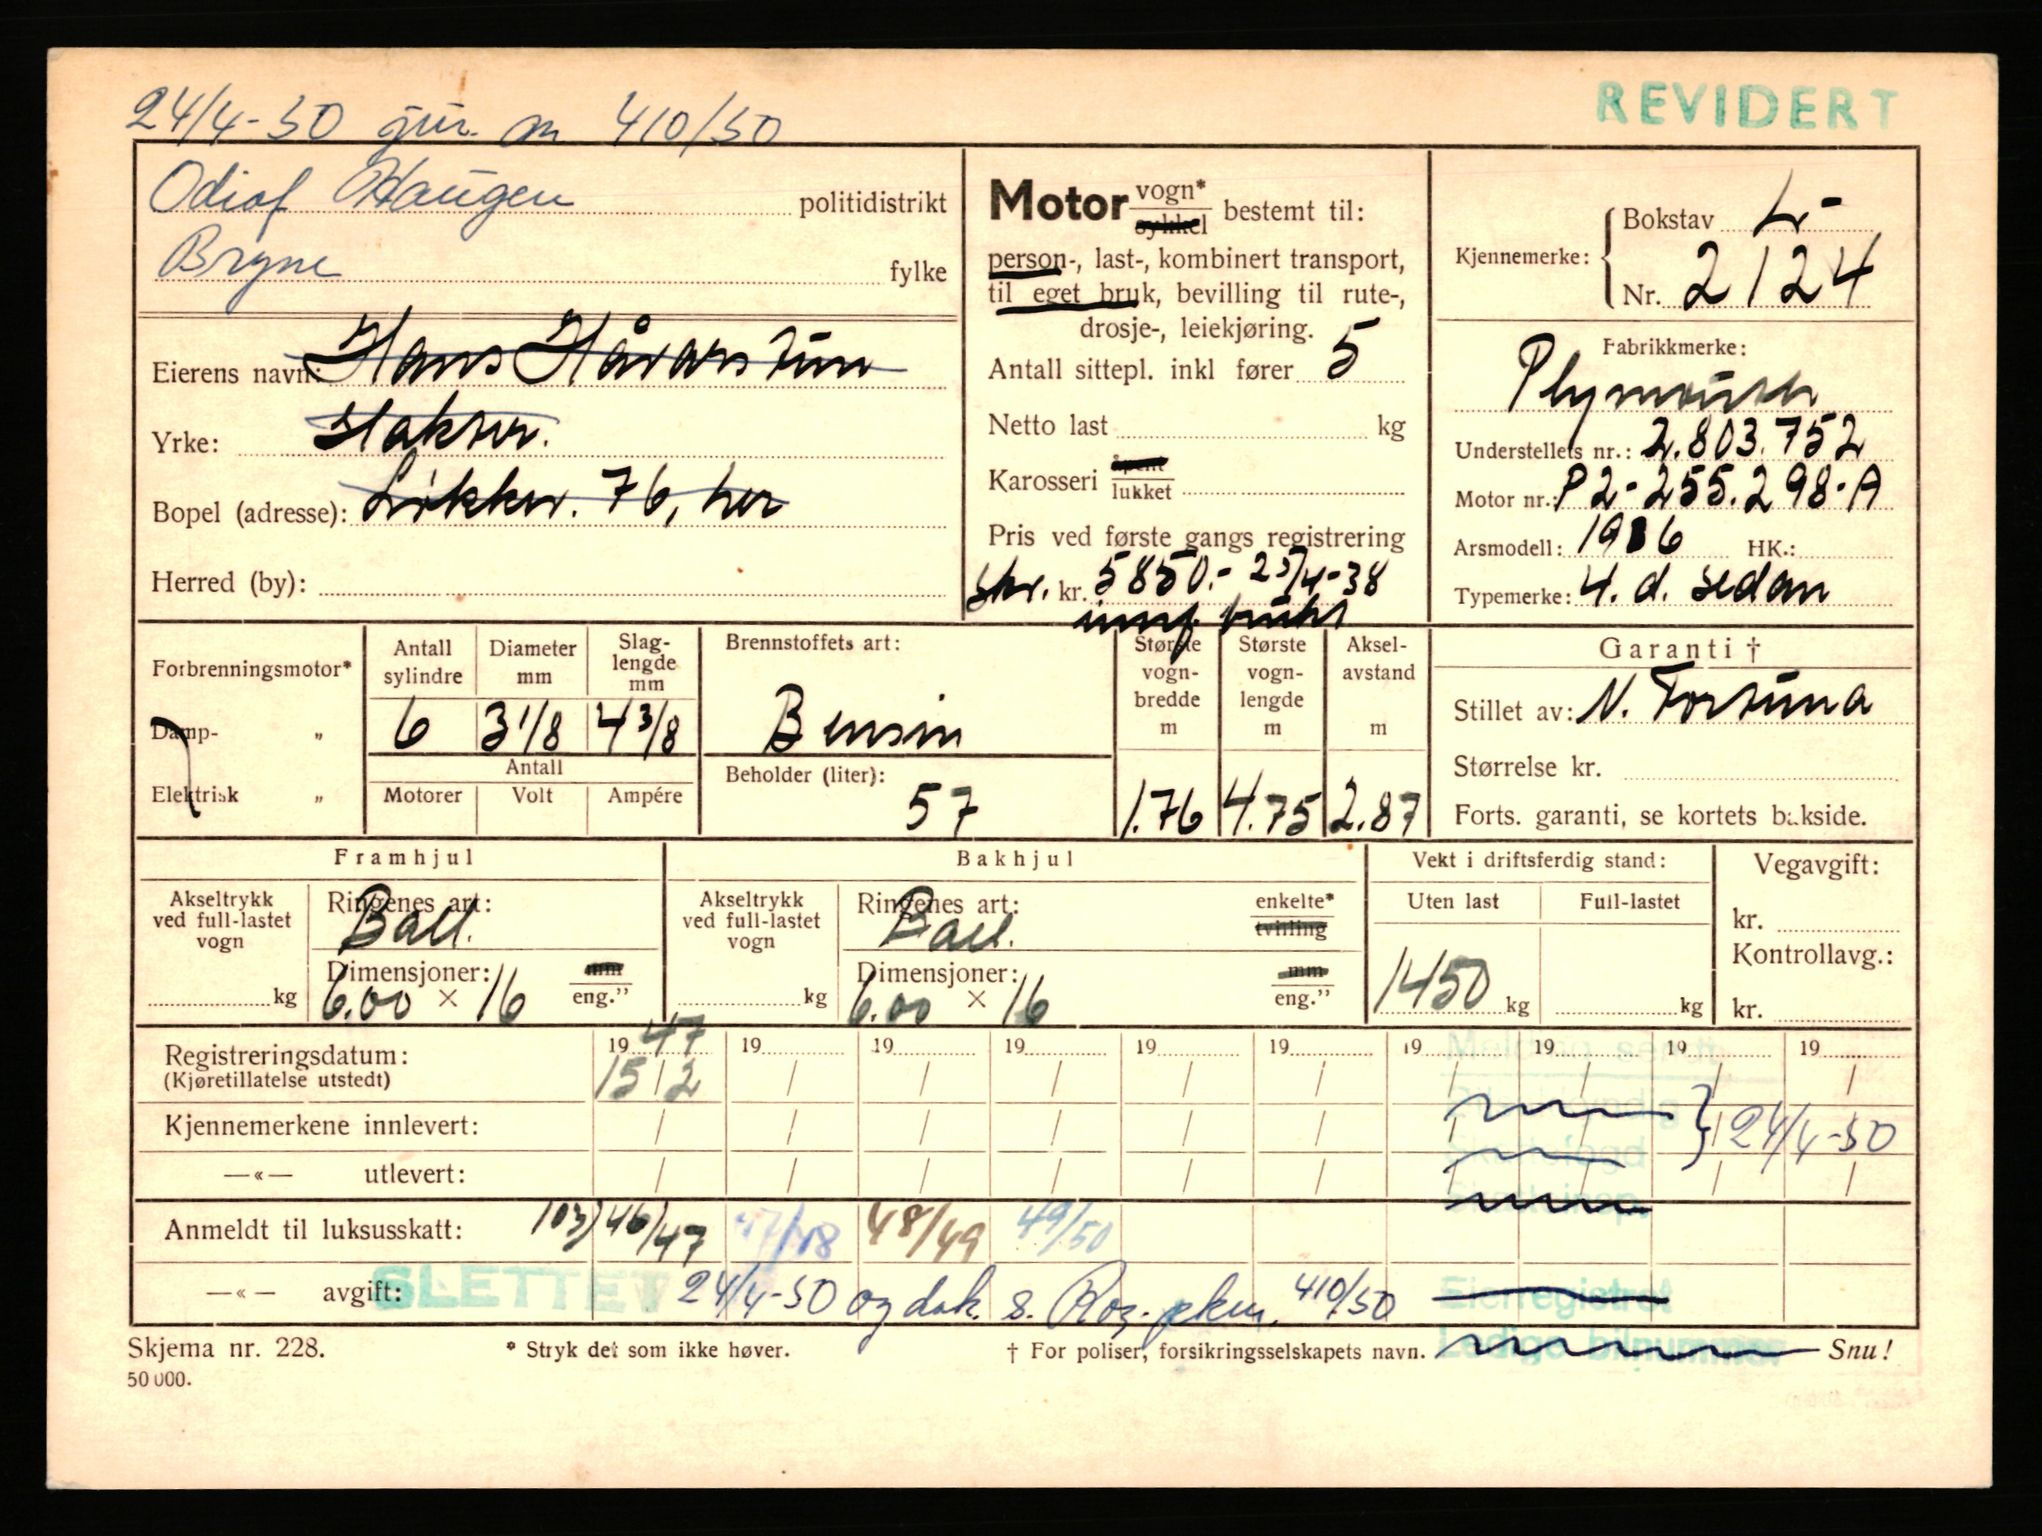 REVIDERT
24/4-50 410/50
Odlaf Haugen politidistrikt
Bryne fylke
Eierens navn: Hans
Yrke:
Bopel (adresse): 76, her
Herred (by):
Motor vogn* sykkel bestemt til:
person-, last-, kombinert transport,
til eget bruk, bevilling til rute-,
drosje-, leiekjøring.
Antall sittepl. inkl fører 5
Netto last kg
Karosseri åpent lukket
Pris ved første gangs registrering
Skr. kr. 5850.- 25/4-38
innf. brukt
Kjennemerke: Bokstav L-
Nr. 2124
Fabrikkmerke:
Plymouth
Understellets nr.: 2.803.752
Motor nr.: P2-255.298-A
Arsmodell: 1936 HK.:
Typemerke: 4. d. sedan
Forbrenningsmotor*
Damp- „
Elektrisk „
Antall sylindre Diameter mm Slag-lengde mm
6 3 1/8 4 3/8
Antall
Motorer Volt Ampére
Brennstoffets art:
Bensin
Beholder (liter):
57
Største vogn-bredde m Største vogn-lengde m Aksel-avstand m
1.76 4.75 2.87
Garanti †
Stillet av: N. Fortuna
Størrelse kr.
Forts. garanti, se kortets bakside.
Framhjul
Akseltrykk ved full-lastet vogn
kg
Ringenes art:
Ball.
Dimensjoner: mm
6.00 × 16 eng.”
Bakhjul
Akseltrykk ved full-lastet vogn
kg
Ringenes art: enkelte*
Ball. tvilling
Dimensjoner: mm
6.00 × 16 eng.”
Vekt i driftsferdig stand:
Uten last Full-lastet
1450 kg kg
Vegavgift:
kr.
Kontrollavg.:
kr.
Registreringsdatum: 1947 19 19 19 19 19 19 19 19 19
(Kjøretillatelse utstedt) 15/2 / / / / / / / / /
Kjennemerkene innlevert: / / / / / / 24/4-50
—«— utlevert: / / / / / / / / / /
Anmeldt til luksusskatt: 103/46/47 47/48 48/49 49/50
—«— avgift: SLETTET 24/4-50 og dak. s. 410/50
Eierregistret
Ledige bilnummer
Skjema nr. 228. * Stryk det som ikke høver. † For poliser, forsikringsselskapets navn. Snu!
50 000.